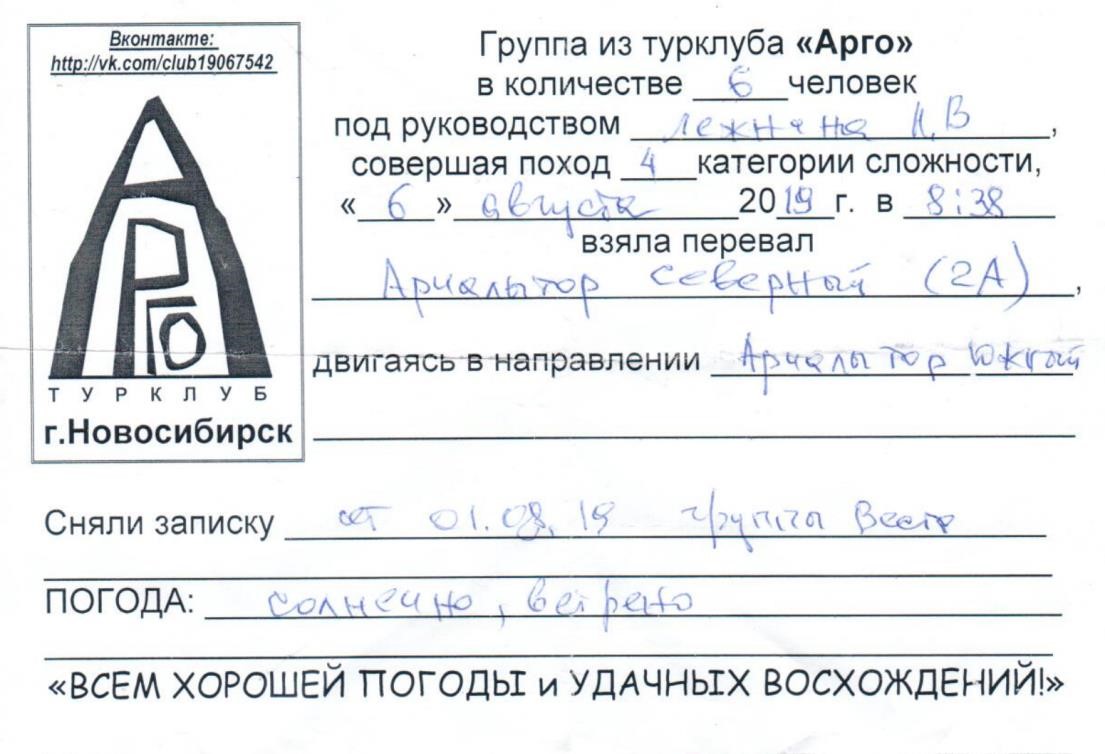 Вконтакте:
http://vk.com/club19067542
АРГО
ТУРКЛУБ
г.Новосибирск
Группа из турклуба «Арго»
в количестве 6 человек
под руководством Лежнина И,В,
совершая поход 4 категории сложности,
«6» августа 2019 г. в 8:38
взяла перевал
Арчалытор Северный (2А),
двигаясь в направлении Арчалытор Южный
Сняли записку от 01.08.19 группы
ПОГОДА: солнечно, ветрено
«ВСЕМ ХОРОШЕЙ ПОГОДЫ и УДАЧНЫХ ВОСХОЖДЕНИЙ!»